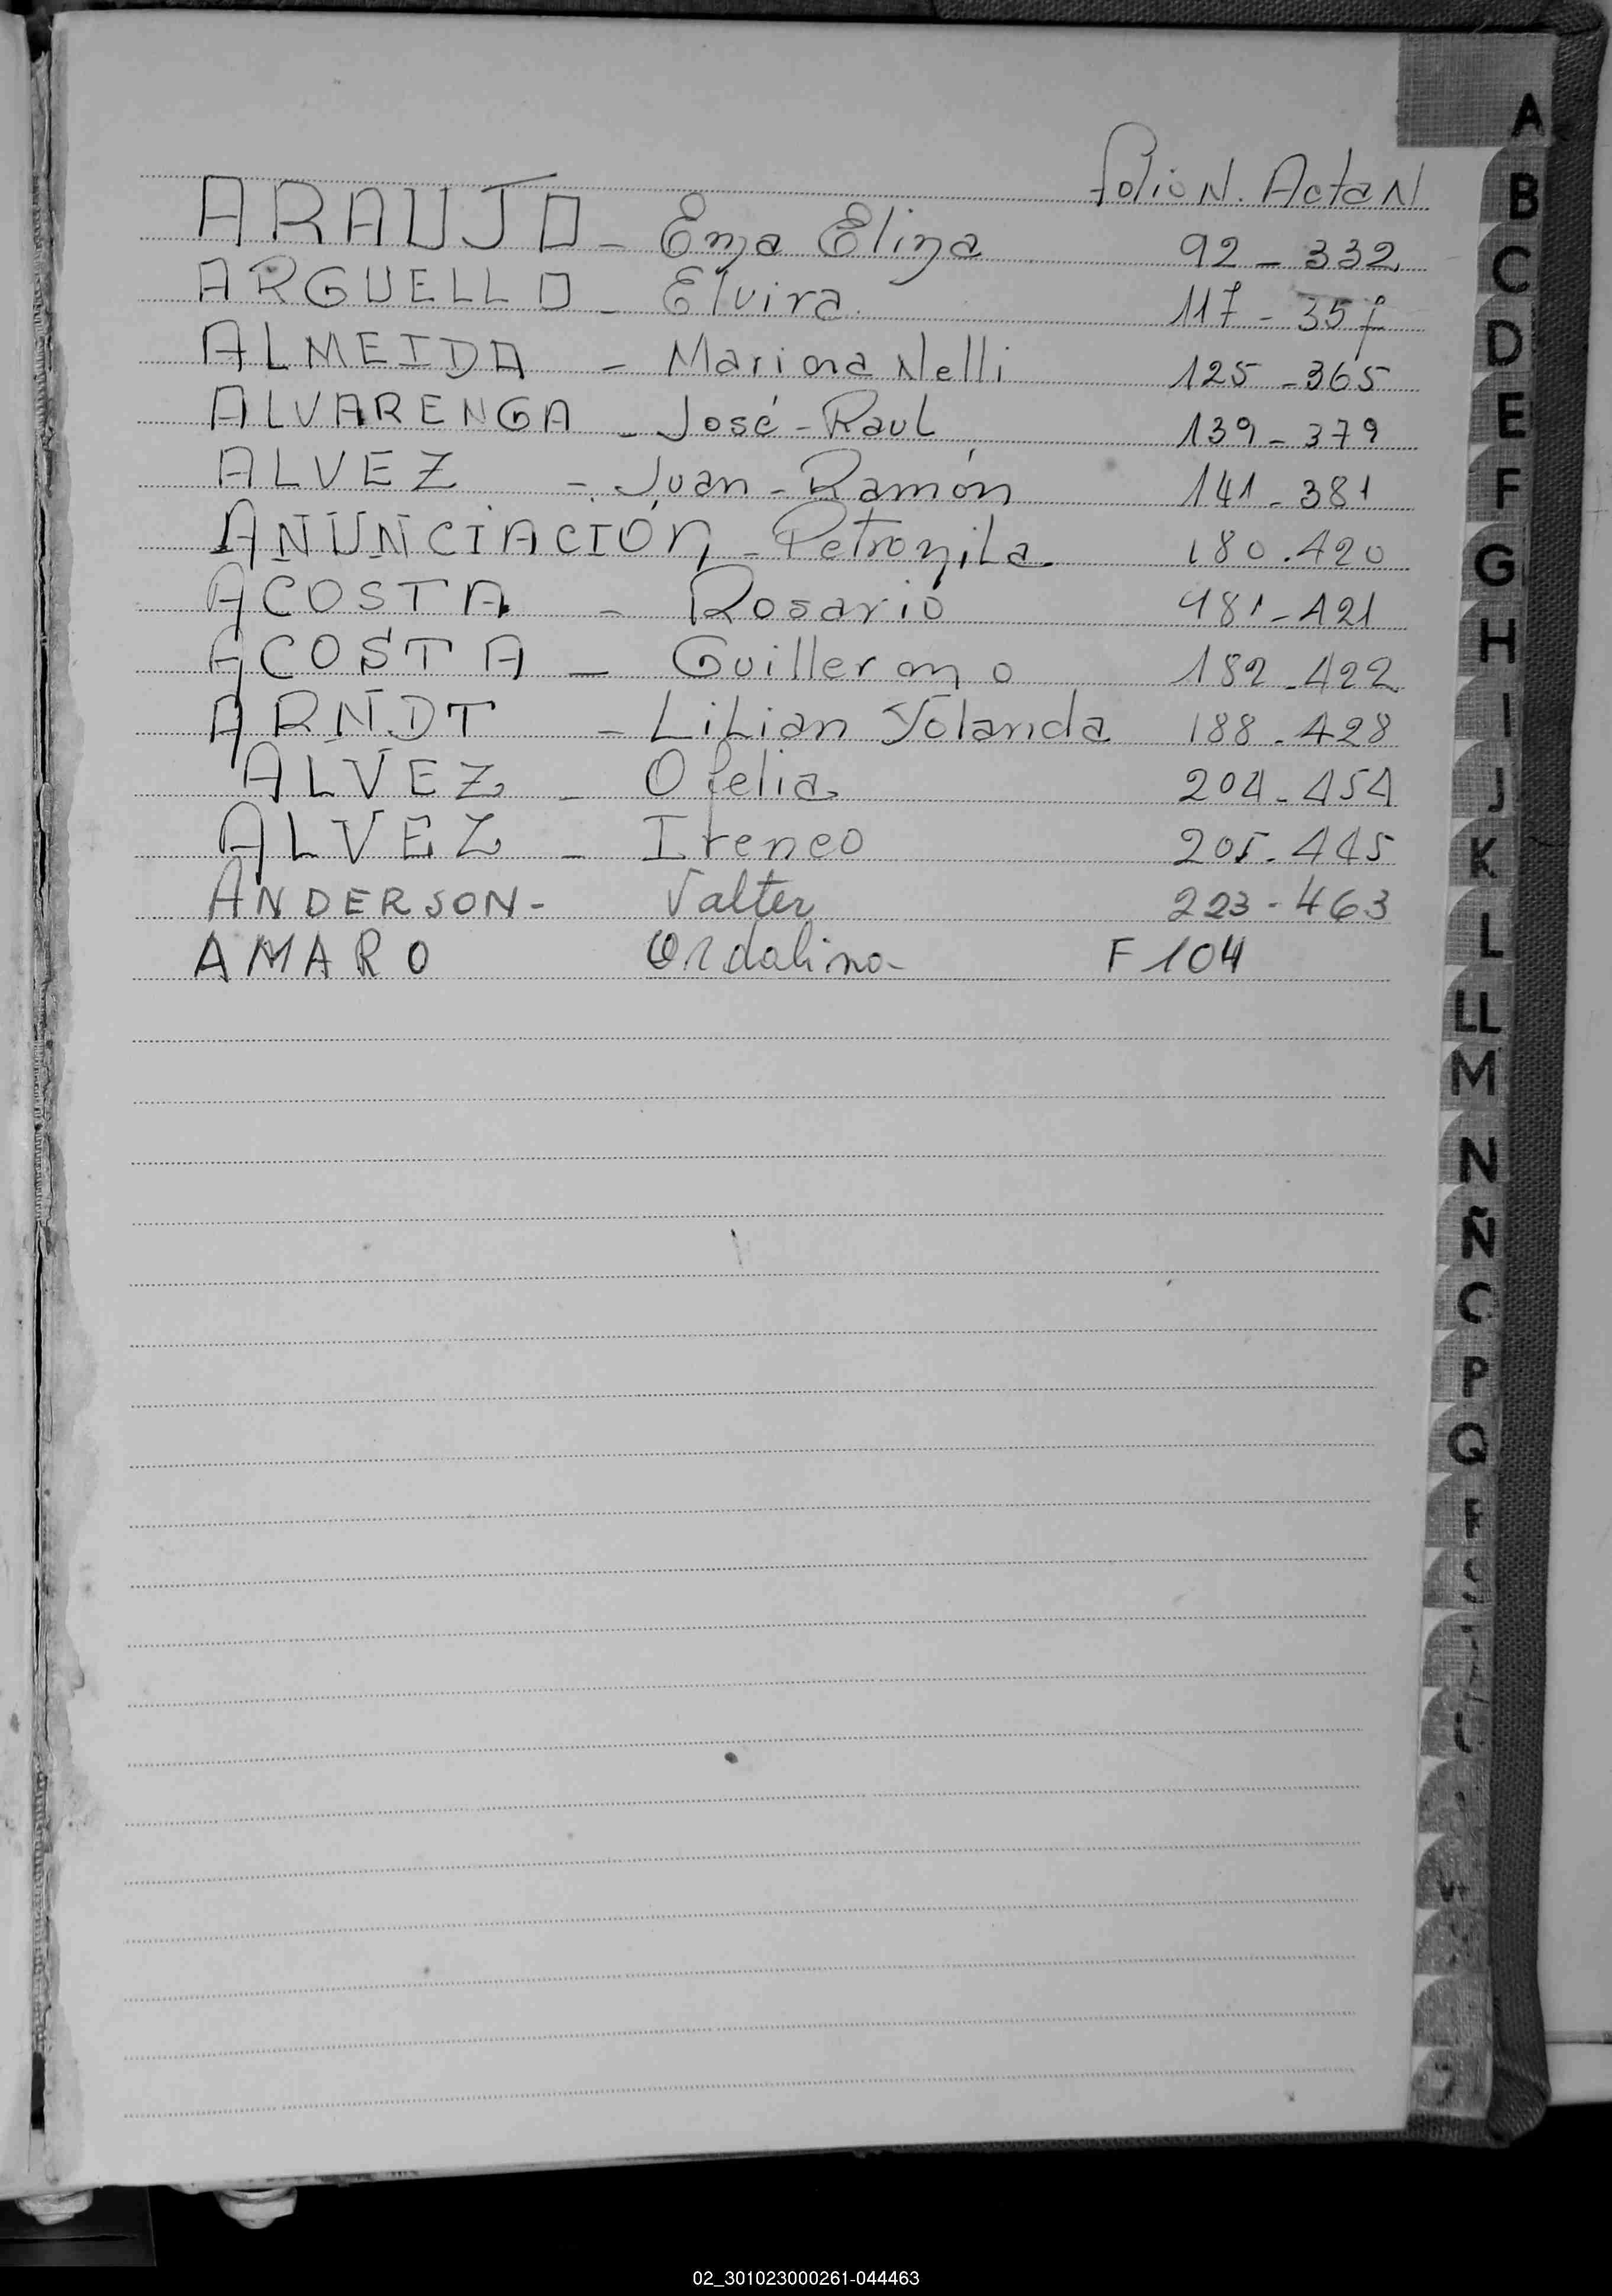 Folio N. Acta N
ARAUJO - Ema Eliza 92 - 332
ARGUELLO - Elvira 117 - 357
ALMEIDA - Mariona Nelli 125 - 365
ALVARENGA - José - Raul 139 - 379
ALVEZ - Juan - Ramón 141 - 381
ANUNCIACIÓN - Petronila 180 - 420
ACOSTA - Rosario 181 - 421
ACOSTA - Guillermo 182 - 422
ARNDT - LiLian Yolanda 188 - 428
ALVEZ - Ofelia 204 - 454
ALVEZ - Ireneo 205 - 445
ANDERSON - Valter 223 - 463
AMARO Ordalino - F 104
A
B
C
D
E
F
G
H
I
J
K
L
LL
M
N
Ñ
P
Q
02_301023000261-044463